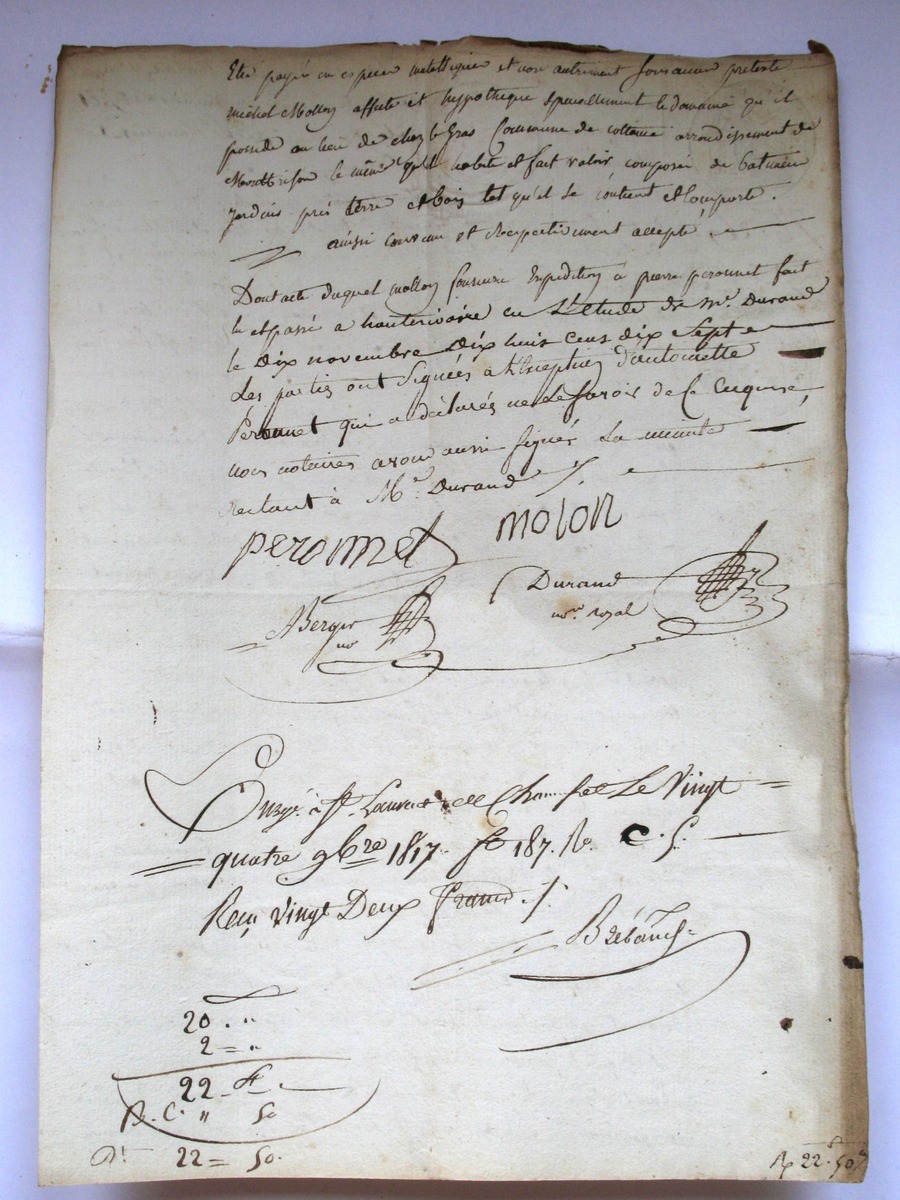 Etre payés en espece métallique et non autrement sous aucun pretexte
michel Mollon affecte et hypotheque speciallement le domaine qu'il
possede au lieu de chez le gras Commune de cottance arrondissement de
Montbrison le même qu'il habite et fait valoir, composé de batiment
Jardins prés terre et bois tel qu'il se contient et Comporte.
ainsi convenu et Respectivement accepté
Dont acte duquel mollon fournira Expedition à pierre peronnet fait
et passé a hauterivoire en L'Etude de Me. Durand
le Dix novembre Dix huit cens dix Sept
Les partis ont Signées à L'Exception d'antoinette
Péronnet qui a déclarés ne Le Savoir de ce Enquise,
nous notaires avons aussi signés La minute
Restant à Me. Durand
peronnet molon
Durand
nore. royal
Berger
no
Enregé. à St. Laurent de Chamousset Le Vingt
quatre 9bre 1817. fo 187. Ro. C. 5.
Reçu Vingt Deux francs
20 . "
2 = "
22 - "
C. " 50
22 = 50.
22. 50